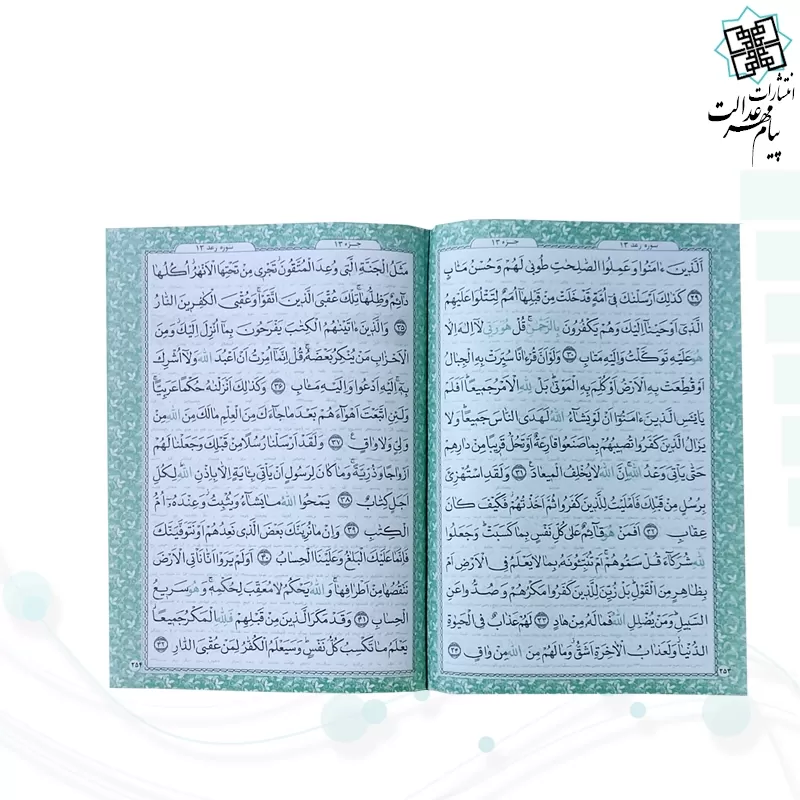 انتشارات
پیام مهر عدالت
سوره رعد ١٣
جزء ١٣
اَلَّذينَ ءَامَنُوا وَ عَمِلُوا الصّٰلِحٰتِ طُوبىٰ لَهُمْ وَ حُسْنُ مَـَٔابٍ
﴿٢٩﴾ كَذٰلِكَ اَرْسَلْنٰكَ فى اُمَّةٍ قَدْ خَلَتْ مِنْ قَبْلِهآ اُمَمٌ لِتَتْلُوَا۟ عَلَيْهِمُ
الَّذى اَوْحَيْنآ اِلَيْكَ وَ هُمْ يَكْفُرُونَ بِالرَّحْمٰنِ ۚ قُلْ هُوَ رَبّى لآ اِلٰهَ اِلّا
هُوَ عَلَيْهِ تَوَكَّلْتُ وَ اِلَيْهِ مَتابِ ﴿٣٠﴾ وَ لَوْ اَنَّ قُرْءَانًا سُيِّرَتْ بِهِ الْجِبالُ
اَوْ قُطِّعَتْ بِهِ الْاَرْضُ اَوْ كُلِّمَ بِهِ الْمَوْتىٰ ۗ بَلْ لِلّٰهِ الْاَمْرُ جَميعًا ۗ اَفَلَمْ
يَا۟يْـَٔسِ الَّذينَ ءَامَنُوٓا اَنْ لَوْ يَشآءُ اللهُ لَهَدَى النّاسَ جَميعًا ۗ وَ لا
يَزالُ الَّذينَ كَفَرُوا تُصيبُهُمْ بِما صَنَعُوا قارِعَةٌ اَوْ تَحُلُّ قَريبًا مِنْ دارِهِمْ
حَتّىٰ يَأْتِىَ وَعْدُ اللهِ ۚ اِنَّ اللهَ لا يُخْلِفُ الْميعادَ ﴿٣١﴾ وَ لَقَدِ اسْتُهْزِئَ
بِرُسُلٍ مِنْ قَبْلِكَ فَاَمْلَيْتُ لِلَّذينَ كَفَرُوا ثُمَّ اَخَذْتُهُمْ ۖ فَكَيْفَ كانَ
عِقابِ ﴿٣٢﴾ اَفَمَنْ هُوَ قآئِمٌ عَلىٰ كُلِّ نَفْسٍ بِما كَسَبَتْ ۗ وَ جَعَلُوا
لِلّٰهِ شُرَكآءَ قُلْ سَمُّوهُمْ ۚ اَمْ تُنَبِّـُٔونَهُ بِما لا يَعْلَمُ فِى الْاَرْضِ اَمْ
بِظاهِرٍ مِنَ الْقَوْلِ ۗ بَلْ زُيِّنَ لِلَّذينَ كَفَرُوا مَكْرُهُمْ وَ صُدُّوا عَنِ
السَّبيلِ ۗ وَ مَنْ يُضْلِلِ اللهُ فَما لَهُ مِنْ هادٍ ﴿٣٣﴾ لَهُمْ عَذابٌ فِى الْحَيٰوةِ
الدُّنْيا ۖ وَ لَعَذابُ الْاٰخِرَةِ اَشَقُّ ۖ وَ ما لَهُمْ مِنَ اللهِ مِنْ واقٍ ﴿٣٤﴾
٢٥٣
جزء ١٣
سوره رعد ١٣
مَثَلُ الْجَنَّةِ الَّتى وُعِدَ الْمُتَّقُونَ ۖ تَجْرى مِنْ تَحْتِهَا الْاَنْهٰرُ ۖ اُكُلُها
دآئِمٌ وَ ظِلُّها ۚ تِلْكَ عُقْبَى الَّذينَ اتَّقَوْا ۖ وَ عُقْبَى الْكٰفِرينَ النّارُ
﴿٣٥﴾ وَ الَّذينَ ءَاتَيْنٰهُمُ الْكِتٰبَ يَفْرَحُونَ بِمآ اُنْزِلَ اِلَيْكَ ۖ وَ مِنَ
الْاَحْزابِ مَنْ يُنْكِرُ بَعْضَهُ ۚ قُلْ اِنَّمآ اُمِرْتُ اَنْ اَعْبُدَ اللهَ وَ لآ اُشْرِكَ
بِهِ ۚ اِلَيْهِ اَدْعُوا وَ اِلَيْهِ مَـَٔابِ ﴿٣٦﴾ وَ كَذٰلِكَ اَنْزَلْنٰهُ حُكْمًا عَرَبِيًّا ۚ
وَ لَئِنِ اتَّبَعْتَ اَهْوآءَهُمْ بَعْدَ ما جآءَكَ مِنَ الْعِلْمِ ما لَكَ مِنَ اللهِ مِنْ
وَلِىٍّ وَ لا واقٍ ﴿٣٧﴾ وَ لَقَدْ اَرْسَلْنا رُسُلًا مِنْ قَبْلِكَ وَ جَعَلْنا لَهُمْ
اَزْواجًا وَ ذُرِّيَّةً ۚ وَ ما كانَ لِرَسُولٍ اَنْ يَأْتِىَ بِـَٔايَةٍ اِلّا بِاِذْنِ اللهِ ۗ لِكُلِّ
اَجَلٍ كِتابٌ ﴿٣٨﴾ يَمْحُوا اللهُ ما يَشآءُ وَ يُثْبِتُ ۖ وَ عِنْدَهُٓ اُمُّ
الْكِتٰبِ ﴿٣٩﴾ وَ اِنْ ما نُرِيَنَّكَ بَعْضَ الَّذى نَعِدُهُمْ اَوْ نَتَوَفَّيَنَّكَ
فَاِنَّما عَلَيْكَ الْبَلٰغُ وَ عَلَيْنَا الْحِسابُ ﴿٤٠﴾ اَوَ لَمْ يَرَوْا اَنّا نَأْتِى الْاَرْضَ
نَنْقُصُها مِنْ اَطْرافِها ۚ وَ اللهُ يَحْكُمُ لا مُعَقِّبَ لِحُكْمِهِ ۚ وَ هُوَ سَريعُ
الْحِسابِ ﴿٤١﴾ وَ قَدْ مَكَرَ الَّذينَ مِنْ قَبْلِهِمْ فَلِلّٰهِ الْمَكْرُ جَميعًا ۖ
يَعْلَمُ ما تَكْسِبُ كُلُّ نَفْسٍ ۗ وَ سَيَعْلَمُ الْكُفّٰرُ لِمَنْ عُقْبَى الدّارِ ﴿٤٢﴾
٢٥٤